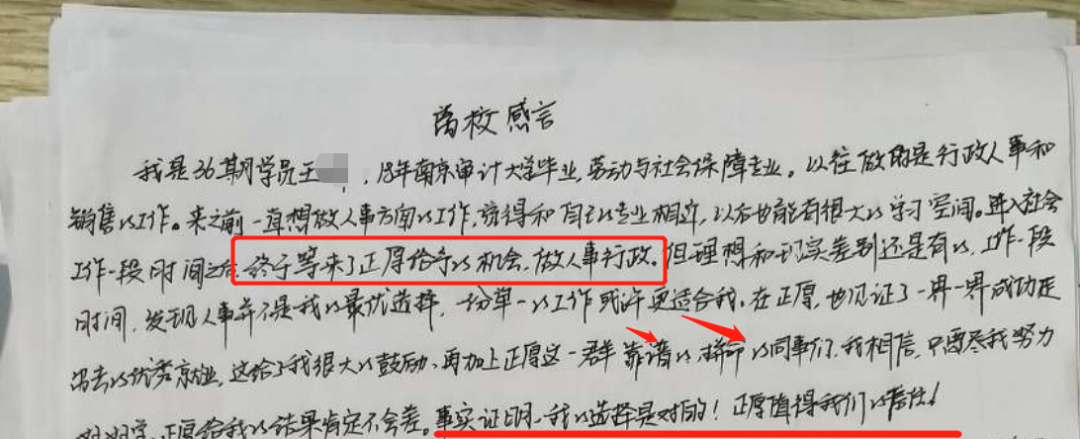 离校感言
我是36期学员王 ,18年南京审计大学毕业,劳动与社会保障专业。以往做的是行政人事和
销售的工作。来之前一直想做人事方面的工作,觉得和自己的专业相近,以后也能有很大的学习空间。进入社会
工作一段时间之后,终于等来了正厚给予的机会,做人事行政。但理想和现实差别还是有的,工作一段
时间,发现人事并不是我的最优选择,一份单一的工作或许更适合我。在正厚,也见证了一届一届成功走
出去的优秀就业,这给了我很大的鼓励,再加上正厚这一群靠谱的拼命的同事们,我相信,只要尽我努力
学,正厚给我的结果肯定不会差。事实证明,我的选择是对的!正厚值得我们的信任!